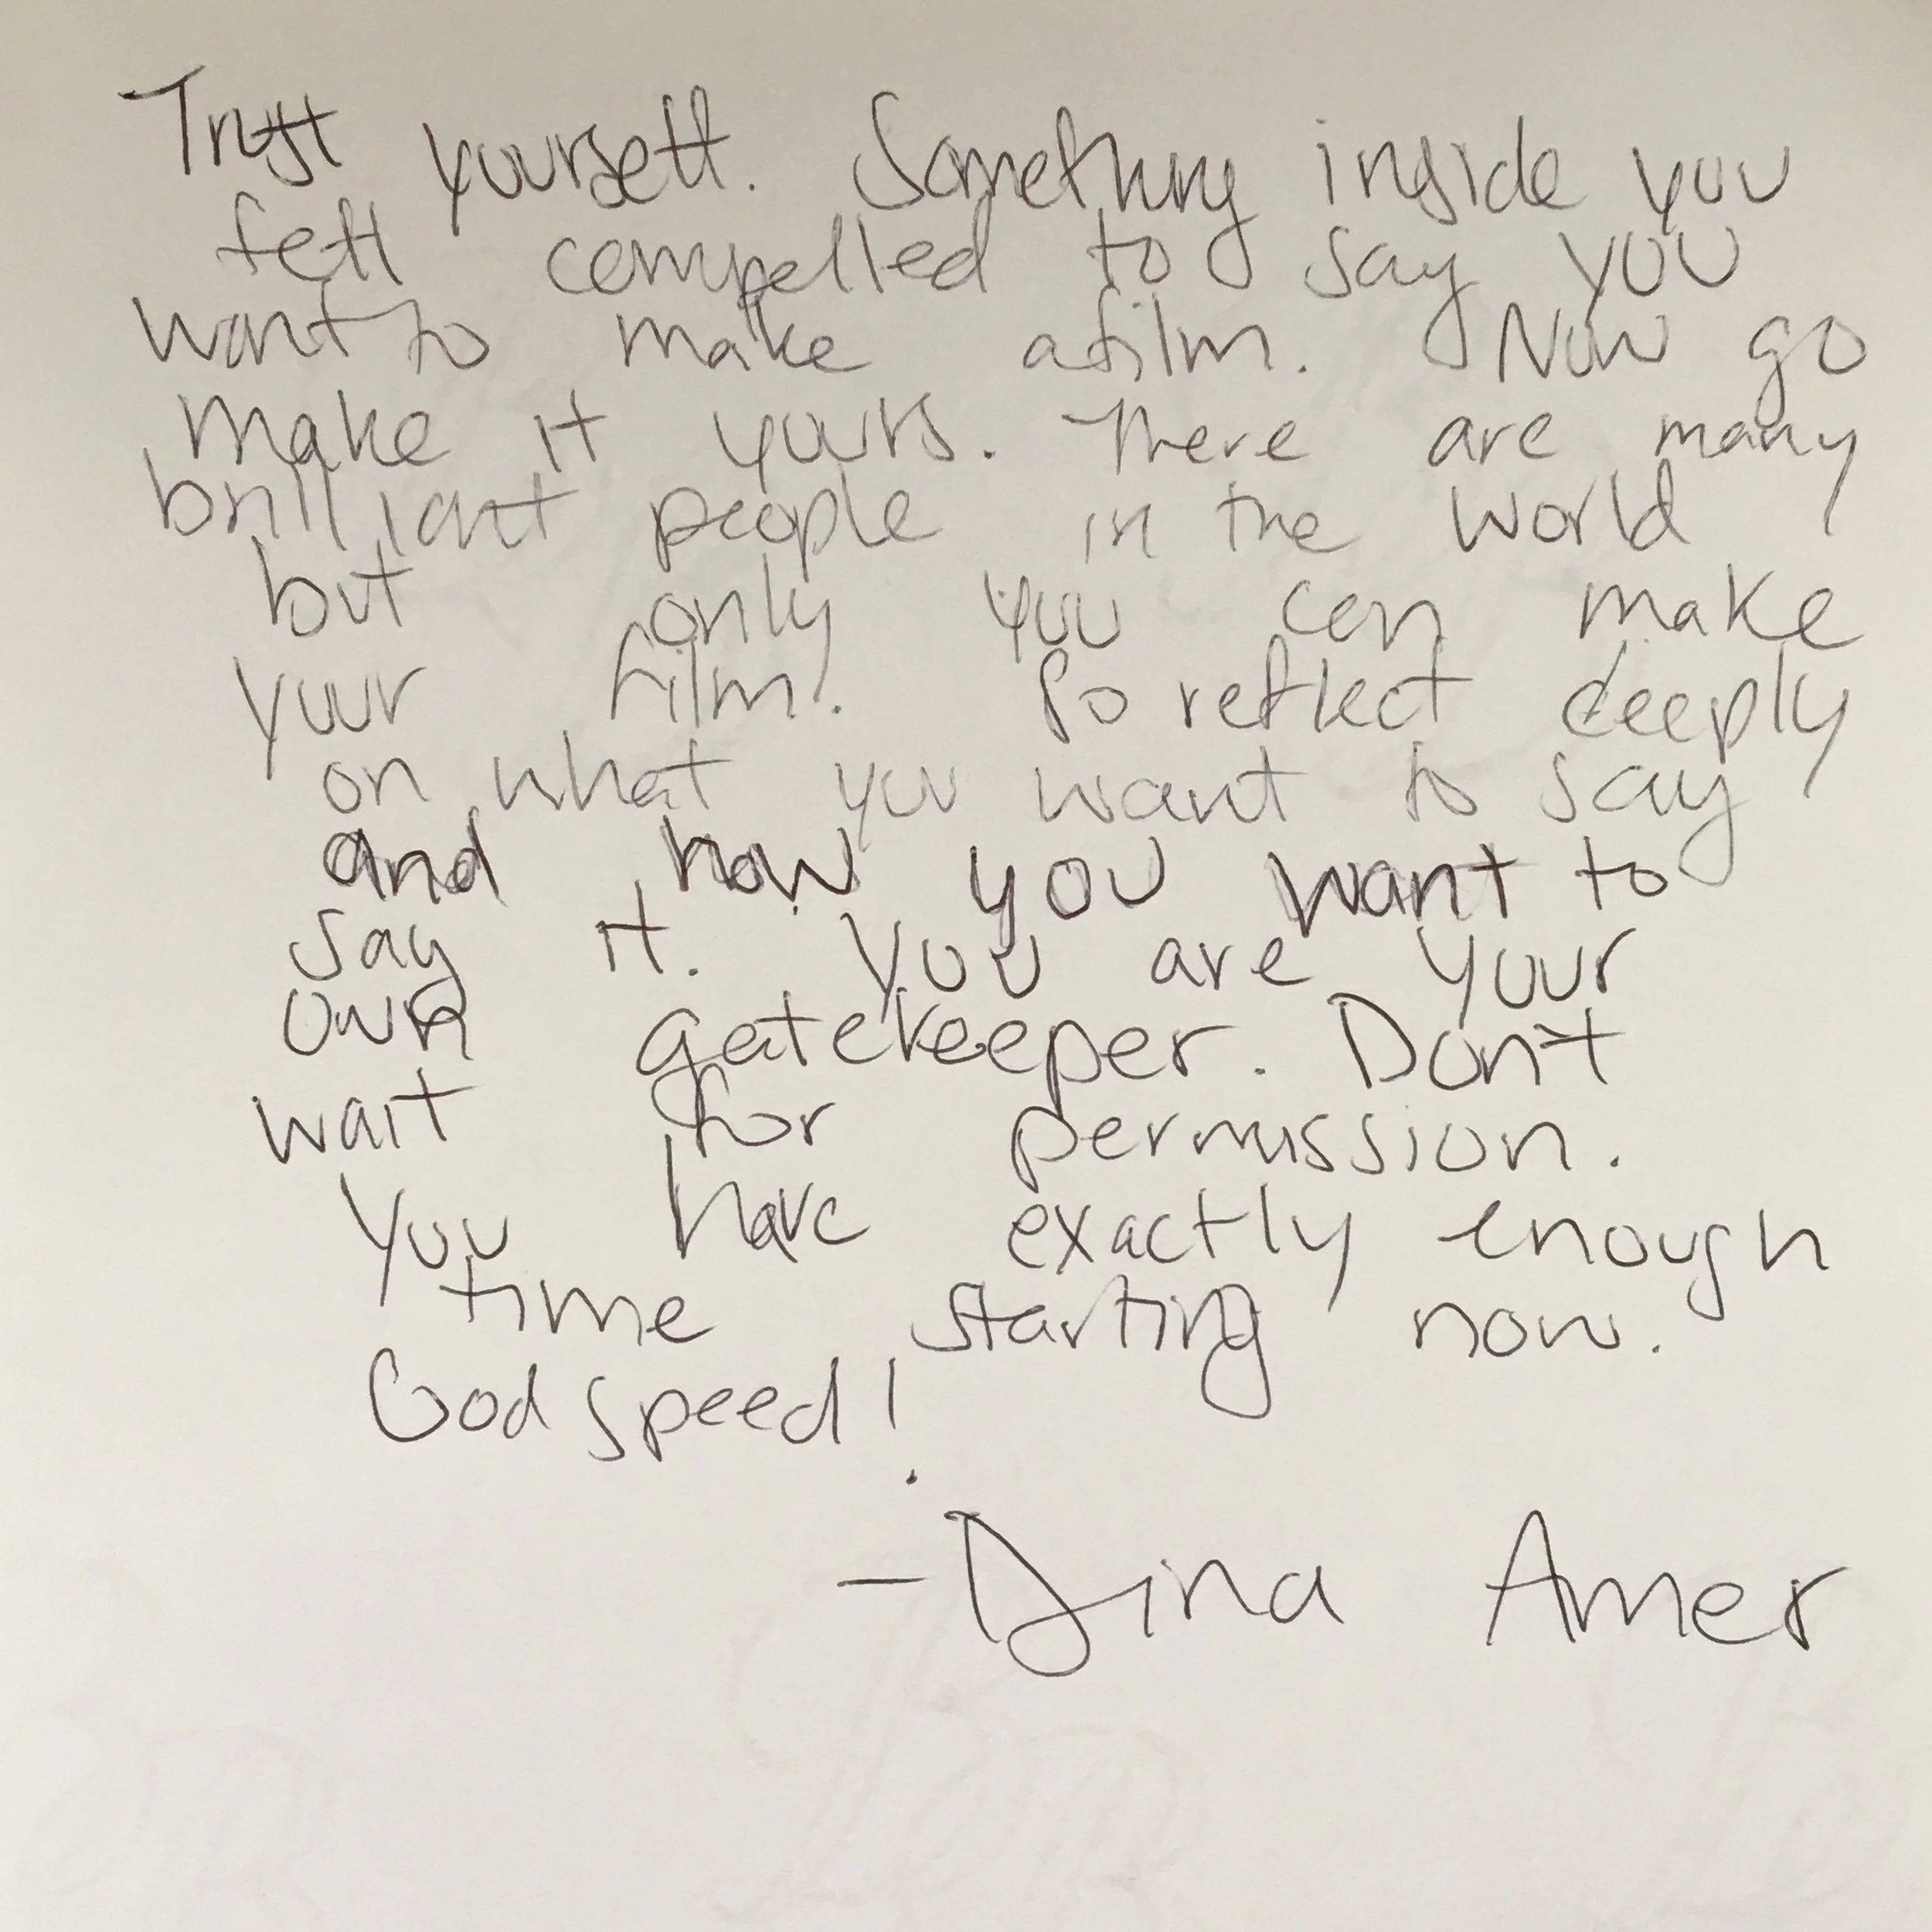 Trust yourself. Something inside you
felt compelled to say you
want to make a film. Now go
make it yours. There are many
brilliant people in the world
but only you can make
your film. So reflect deeply
on what you want to say
and how you want to
say it. You are your
own gatekeeper. Don't
wait for permission.
You have exactly enough
time starting now.
Godspeed!
- Dina Amer